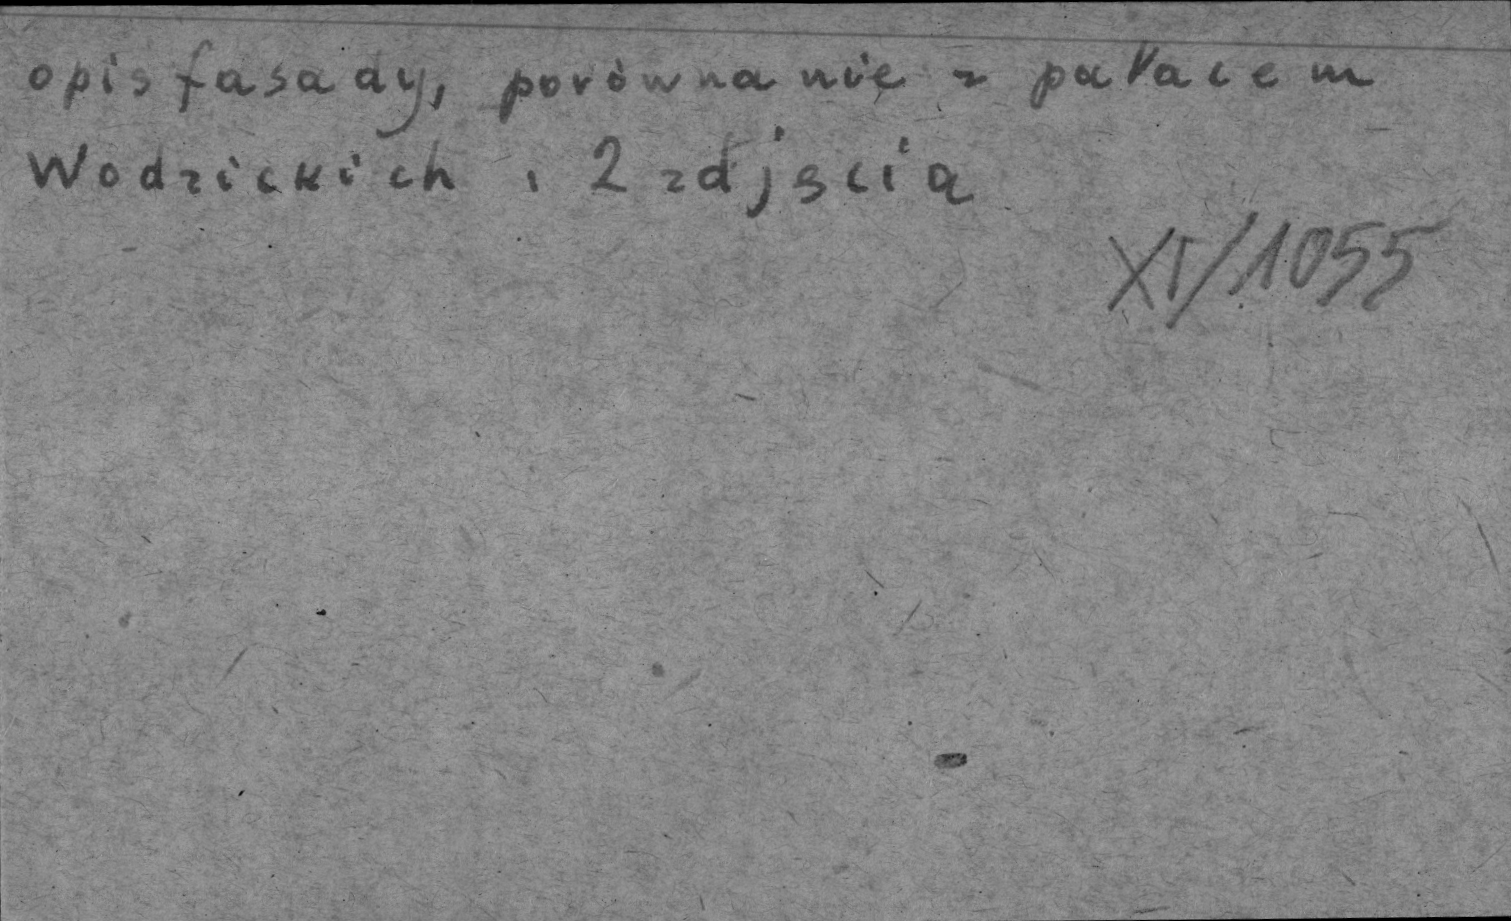 opis fasady, porównanie z pałacem
Wodzickich, 2 zdjęcia
XI/1055